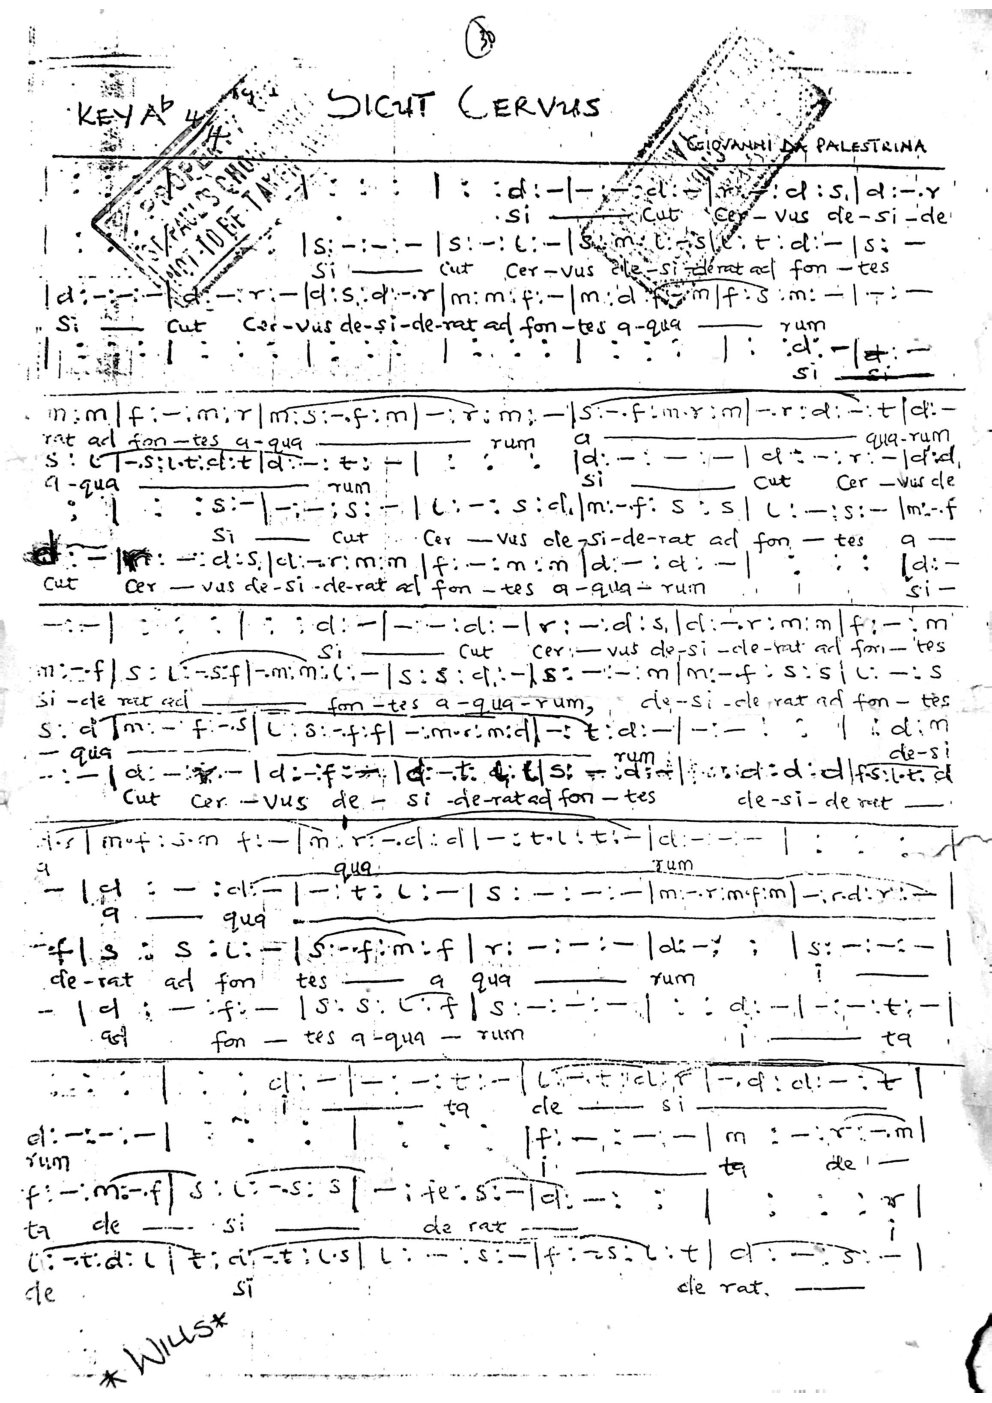 30
SICUT CERVUS
KEY Ab 4
4
GIOVANNI DA PALESTRINA
PROPERTY
ST. PAUL'S CHO
NOT TO BE TAKEN
| : : : | : : d : – | – : – : d : – | r : – : d : s, | d : – . r
Si —— cut Cer – vus de – si – de
| s : – : – : – | s : – : l : – | s : m : l : – . s | l : t : d : – | s : –
Si —— cut Cer – vus de – si – de rat ad fon – tes
| d : – : – : – | d : – : r : – | d : s, : d : – . r | m : m : f : – | m : d : f : – . m | f : s : m : – | – : –
Si —— cut Cer – vus de – si – de – rat ad fon – tes a – qua —— rum
| : : : | : : : | : : : | : : : | : : : | : : d : – | d : –
si —— si
m : m | f : – : m : r | m : s : – . f : m | – : r : m : – | s : – . f : m . r : m | – . r : d : – : t | d : –
rat ad fon – tes a – qua —— rum a —— qua – rum
s : l | – . s : l . t : d : t | d : – : t : – | : : : | d : – : – : – | d : – : r : – | d : d,
a – qua —— rum si —— cut Cer – vus de
: | : : s : – | – : – : s : – | l : – : s : d, | m : – . f : s : s | l : – : s : – | m : – . f
Si —— cut Cer – vus de – si – de – rat ad fon – tes a —
d : – | r : – : d : s, | d : – . r : m : m | f : – : m : m | d : – : d : – | : : : | d : –
cut Cer – vus de – si – de – rat ad fon – tes a – qua – rum si –
– : – | : : : | : : d : – | – : – : d : – | r : – : d : s, | d : – . r : m : m | f : – : m
Si —— cut Cer – vus de – si – de – rat ad fon – tes
m : – . f | s : l : – . s : f | – . m : m : l : – | s : s : d, : – | s : – : – : m | m : – . f : s : s | l : – : s
si – de rat ad —— fon – tes a – qua – rum, de – si – de rat ad fon – tes
s : d | m : – . f : – . s | l : s : – . f : f | – . m . r : m : d | – : t : d : – | – : – : : | : d : m
– qua —— rum de – si
– : – | d : – : r : – | d : – : f : – | d : – . t : d, t | s : – : d : – | : d : d : d | f : s : l . t : d
cut Cer – vus de – si – de – rat ad fon – tes de – si – de rat —
l . s | m . f : s . m f : – | m : r : – . d : d | – : t . l : t : – | d : – : – : – | : : : |
a qua rum
– | d : – : d : – | – : t : l : – | s : – : – : – | m : – . r : m . f : m | – . r . d : r : – |
a —— qua
– . f | s : s : l : – | s : – . f : m : f | r : – : – : – | d : – : : | s : – : – : – |
de – rat ad fon tes —— a qua —— rum i ——
– | d : – : f : – | s : s : l : f | s : – : – : – | : : d : – | – : – : t : – |
ad fon – tes a – qua – rum i —— ta
: : : | : : d : – | – : – : t : – | l : – . t : d : r | – . d : d : – : t |
i —— ta de —— si ——
d : – : – : – | : : : | : : : | f : – : – : – | m : – : r : – . m |
rum i —— ta de —
f : – : m : – . f | s : l : – . s : s | – : fe : s : – | d : – : : | : : : r |
ta de —— si —— de rat —— i
l : – . t : d : l | t : d : – . t : l . s | l : – : s : – | f : – . s : l : t | d : – : s : – |
de si de rat. ——
* WILLS *